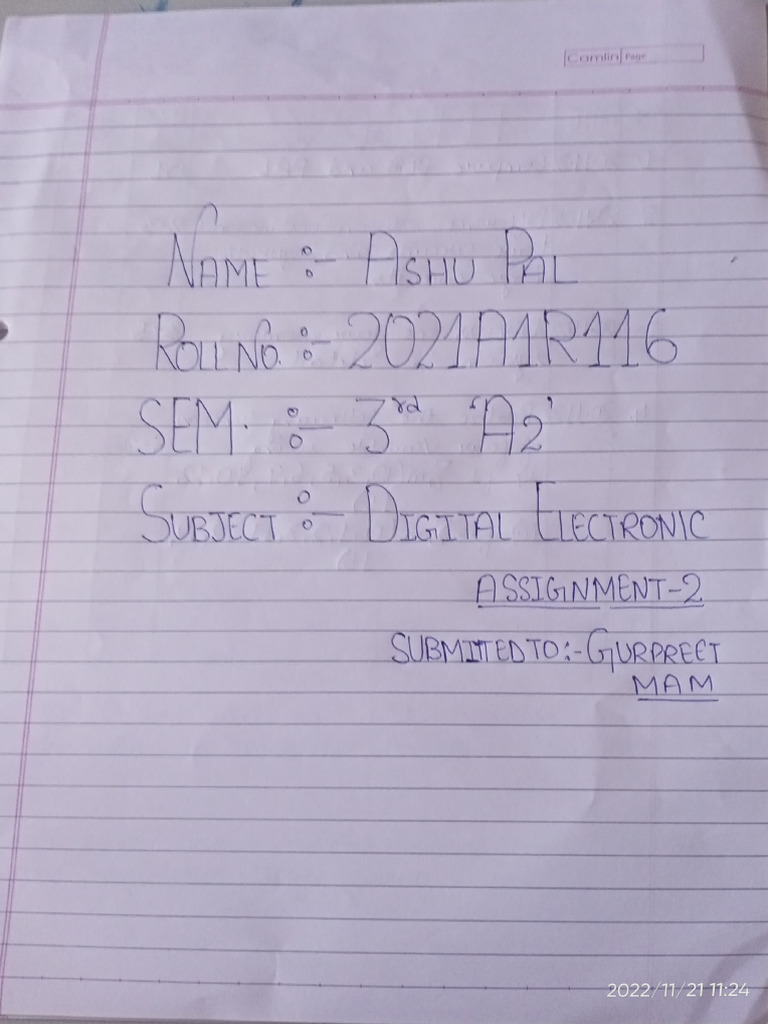 Camlin Page
NAME :- ASHU PAL
ROLL NO. :- 2021A1R116
SEM. :- 3rd 'A2'
SUBJECT :- DIGITAL ELECTRONIC
ASSIGNMENT-2
SUBMITED TO:- GURPREET
MAM
2022/11/21 11:24